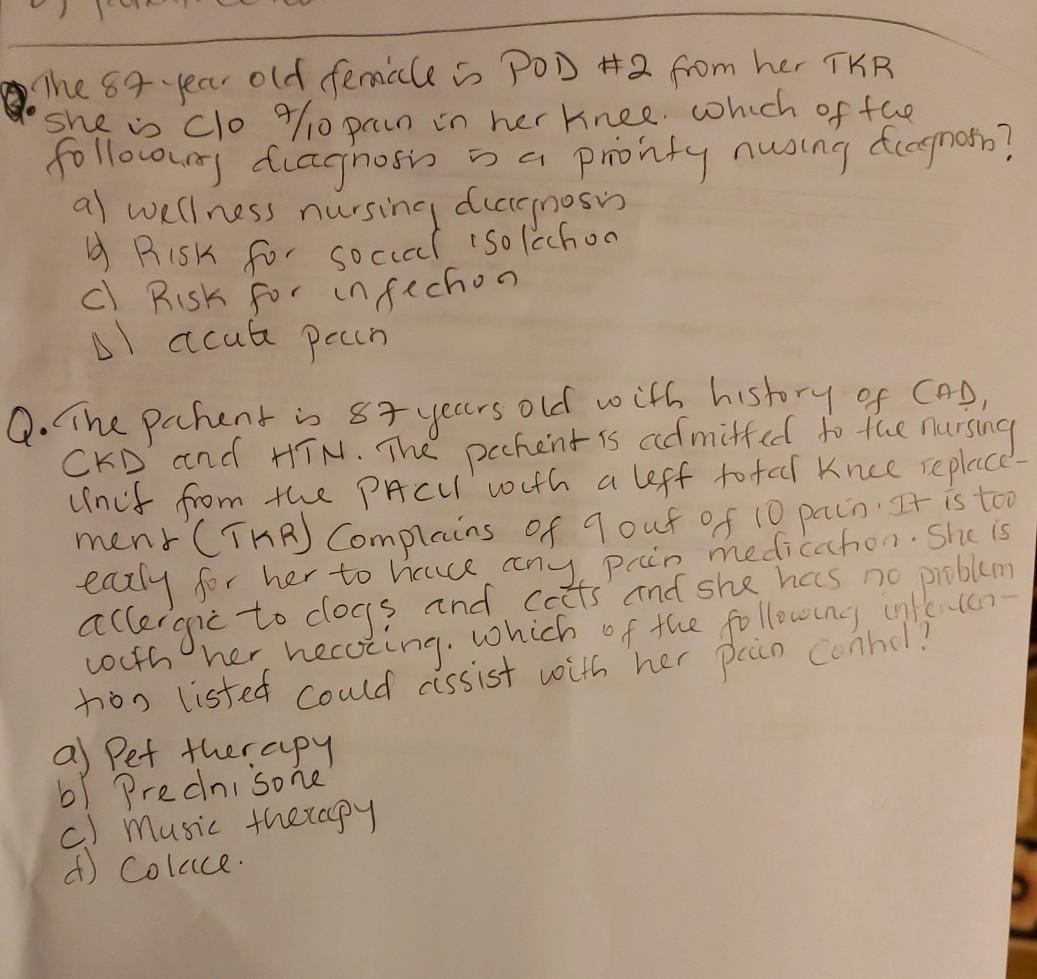 Q. The 87-year old female is POD #2 from her TKR
she is c/o 9/10 pain in her knee. which of the
following diagnosis is a priority nusing diagnosis?
a) wellness nursing diagnosis
b) Risk for social isolation
c) Risk for infection
D) acute pain
Q. The patient is 87 years old with history of CAD,
CKD and HTN. The patient is admitted to the nursing
Unit from the PACU with a left total Knee replace-
ment (TKR) Complains of 9 out of 10 pain. It is too
early for her to have any pain medication. She is
allergic to dogs and cats and she has no problem
with her hearing. which of the following interven-
tion listed could assist with her pain control?
a) Pet therapy
b) Prednisone
c) Music therapy
d) Colace.